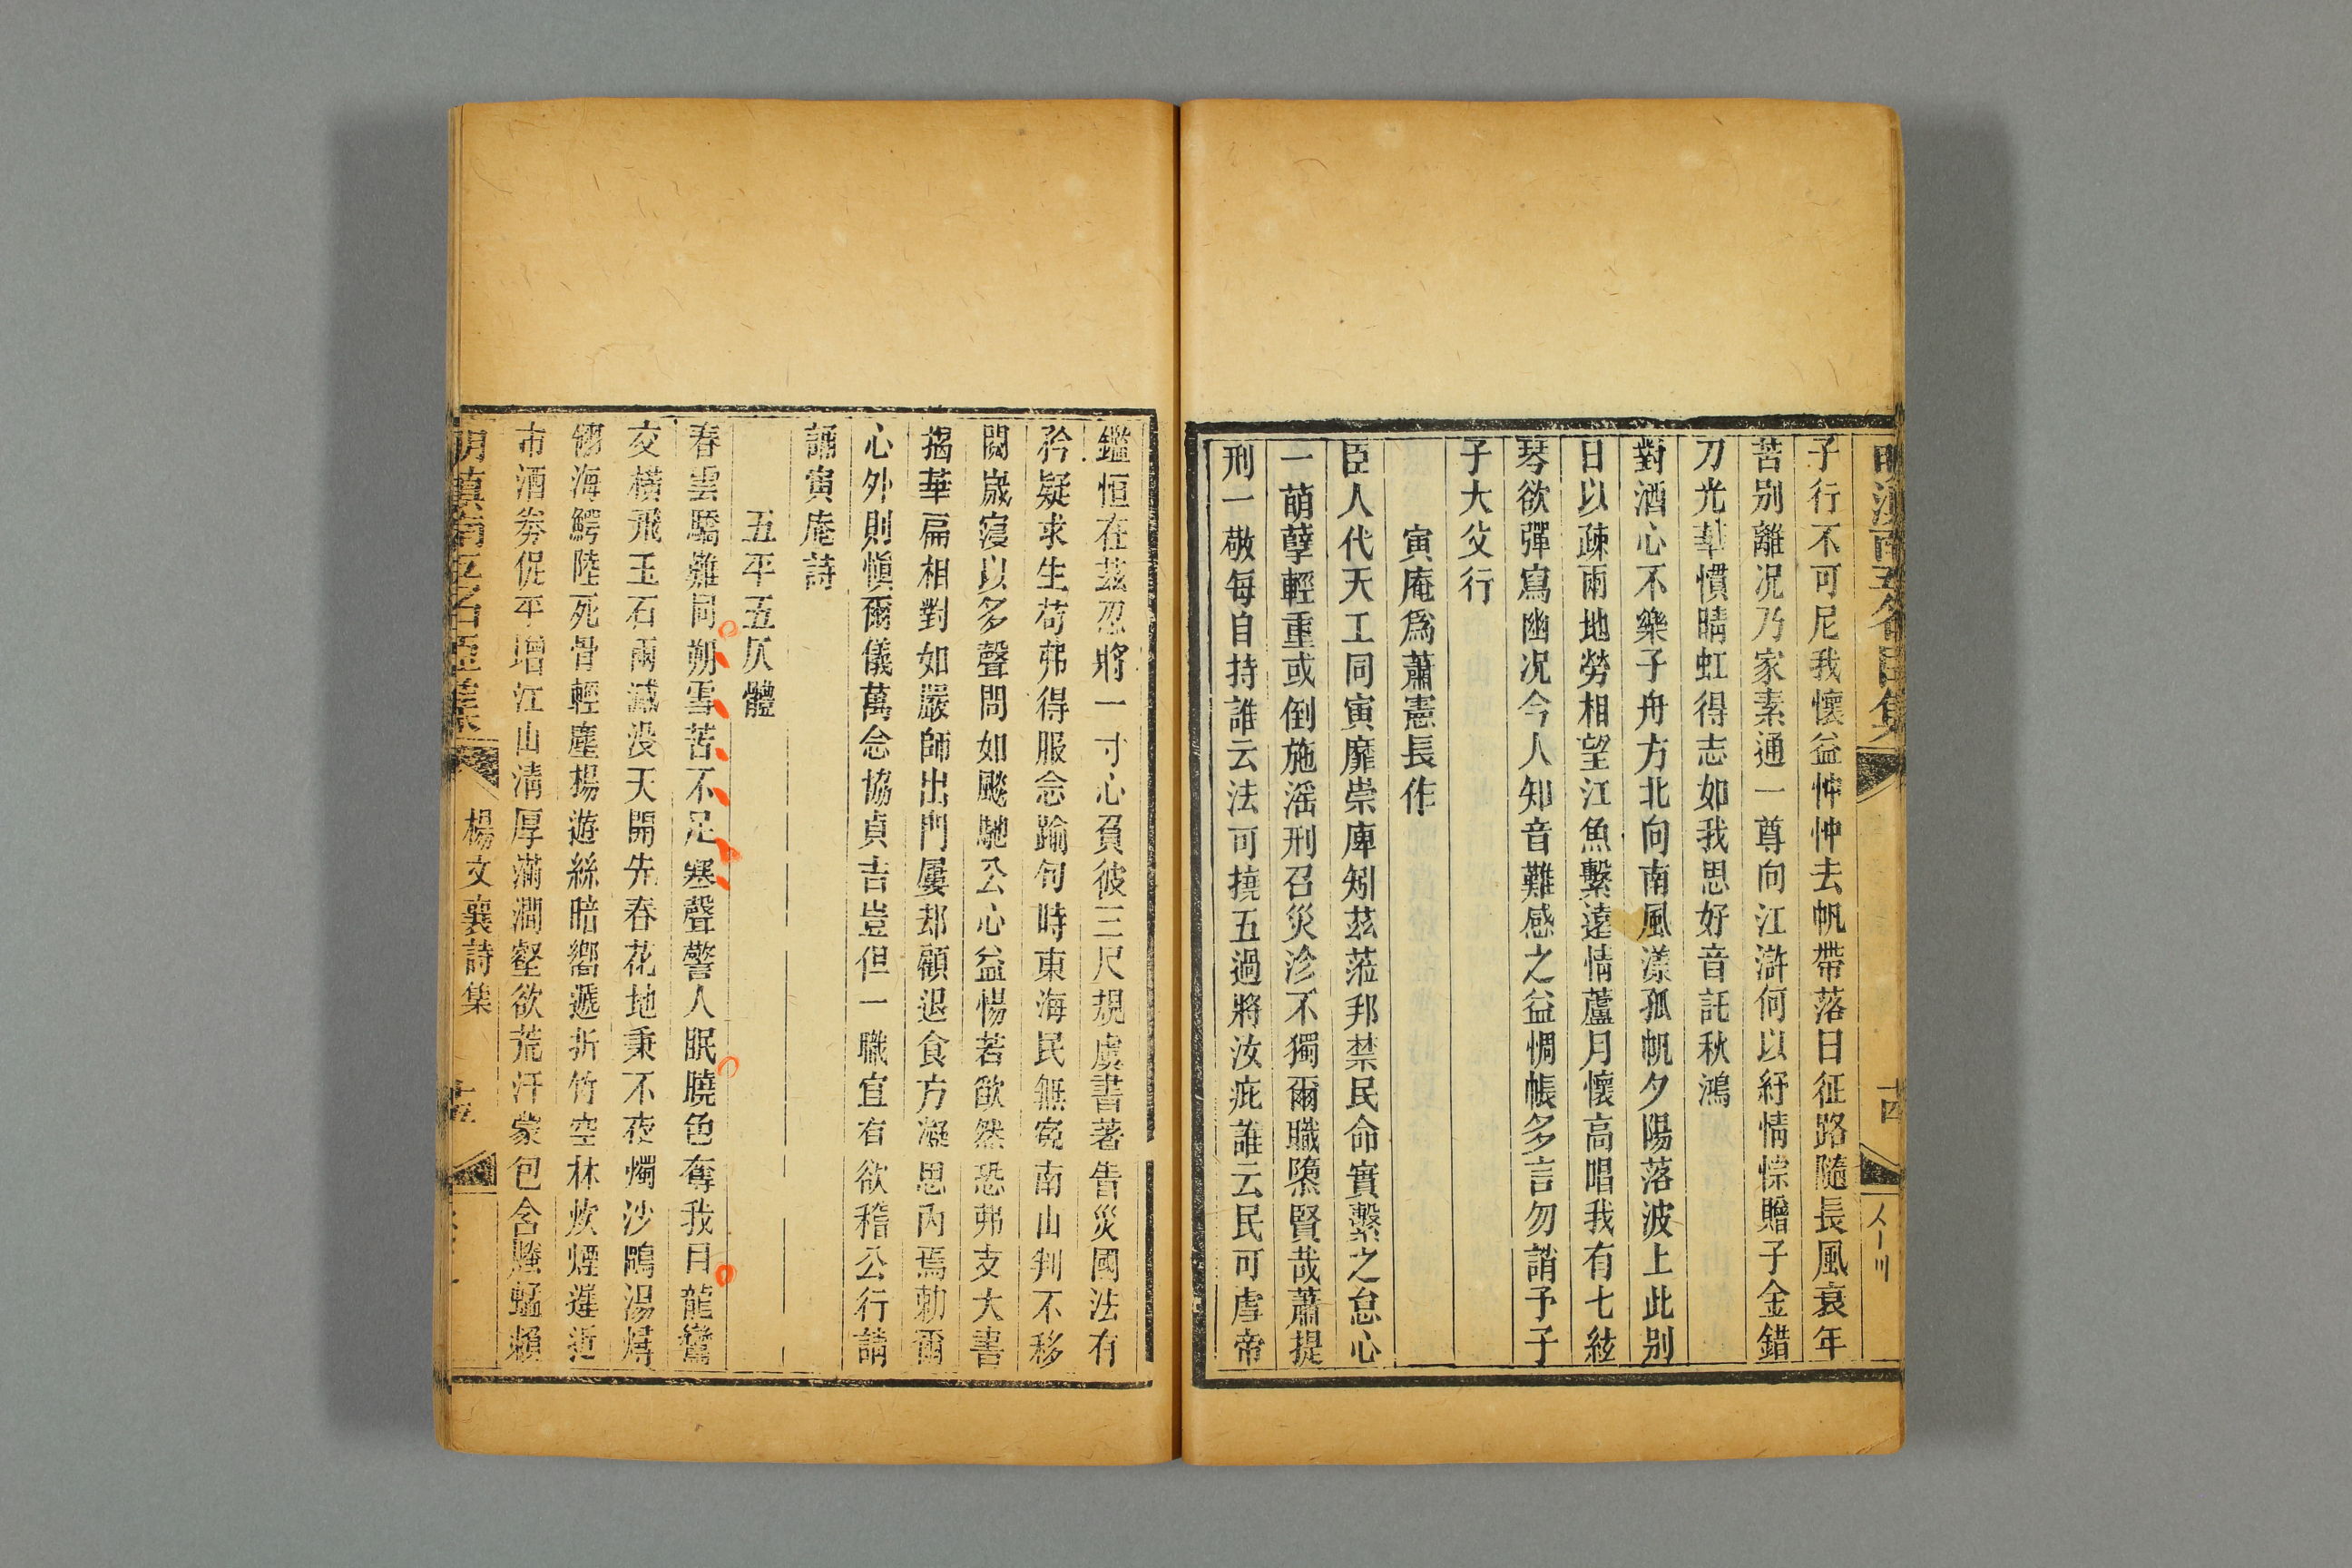 明滇南五名臣集
十四
子行不可尼我懷益忡忡去帆帶落日征路隨長風衰年
苦别離况乃家素通一尊向江滸何以紓情悰贈子金錯
刀光華慣晴虹得志如我思好音託秋鴻
對酒心不樂子舟方北向南風漾孤帆夕陽落波上此别
日以疎兩地勞相望江魚繫遠情蘆月懷高唱我有七絃
琴欲彈寫幽况今人知音難感之益惆帳多言勿誚予子
子大父行
寅庵爲蕭憲長作
臣人代天工同寅靡崇庳矧茲蒞邦禁民命實繫之怠心
一萌孽輕重或倒施滛刑召災沴不獨爾職隳賢哉蕭提
刑一敬每自持誰云法可撓五過將汝疵誰云民可虐帝
鑑恒在茲忍將一寸心負彼三尺規虞書著眚災國法有
矜疑求生苟弗得服念踰旬時東海民無寃南山判不移
閱嵗寖以多聲問如飈馳公心益惕若欿然恐弗支大書
揭華扁相對如嚴師出門屢却顧退食方凝思内焉勅爾
心外則愼爾儀萬念協貞吉豈但一職宜有欲稽公行請
誦寅庵詩
五平五仄體
春雲驕難同朔雪苦不足寒聲警人眠曉色奪我目龍鸞
交橫飛玉石兩滅没天開先春花地秉不夜燭沙鷗湯燖
翎海鰐陸死骨輕塵揚遊絲暗嚮遞折竹空林炊煙遲近
市酒劵促平增江山淸厚滿澗壑欲荒汗蒙包含騰蜢賴
明滇南五名臣集
楊文襄詩集
十五